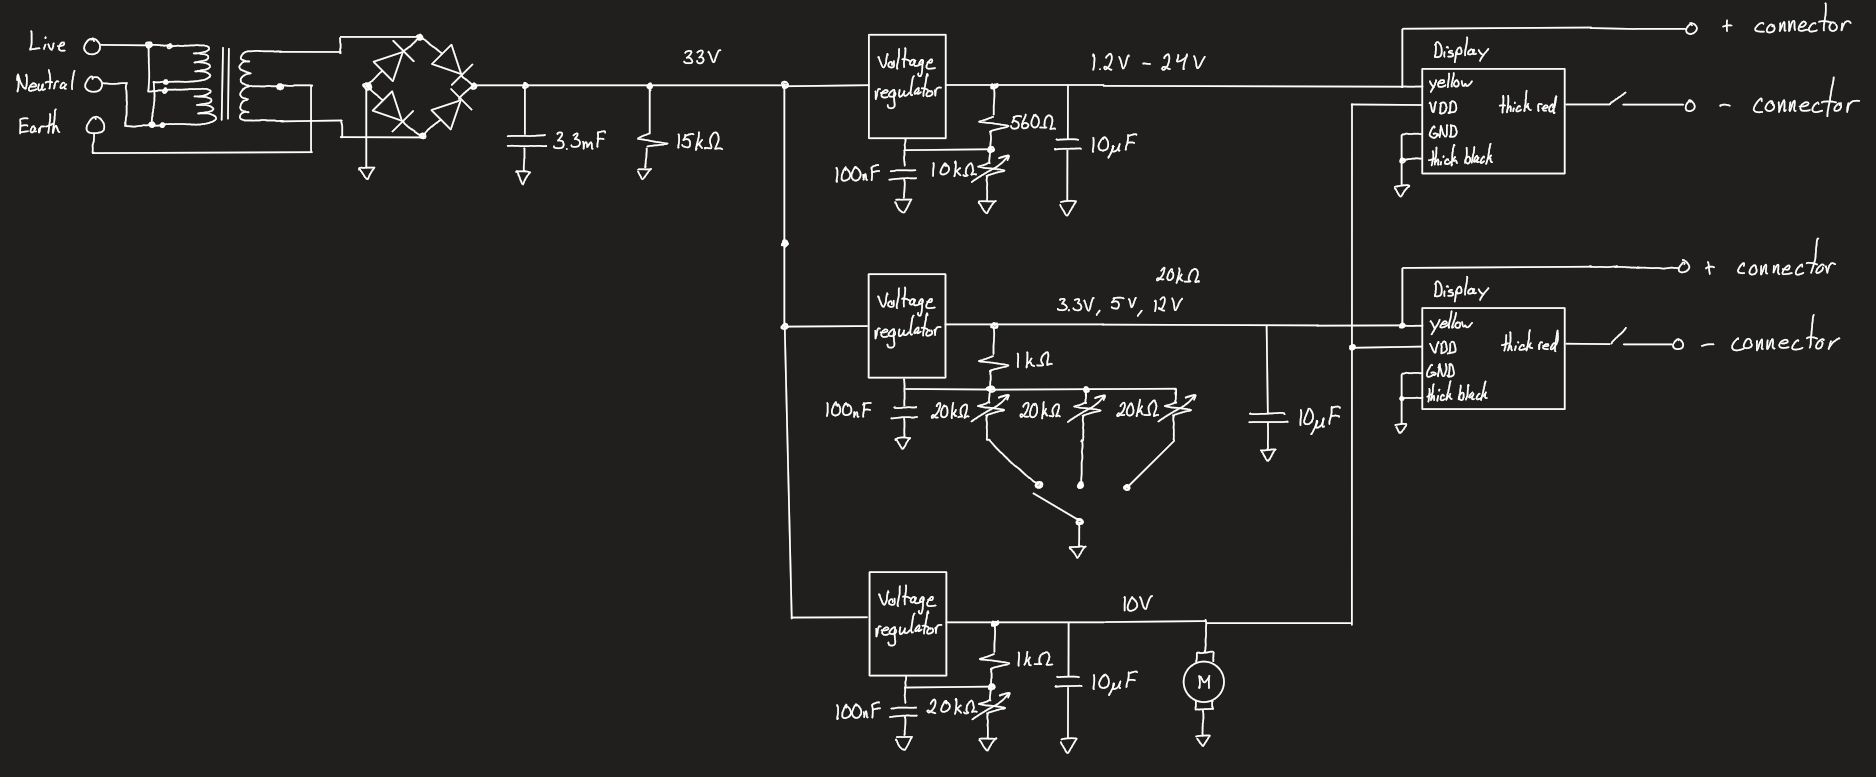 Live
Neutral
Earth
33V
3.3mF
15kΩ
Voltage
regulator
1.2V - 24V
560Ω
10μF
100nF
10kΩ
Display
yellow
VDD
GND
thick black
thick red
+ connector
- connector
Voltage
regulator
20kΩ
3.3V, 5V, 12V
1kΩ
100nF
20kΩ
20kΩ
20kΩ
10μF
Display
yellow
VDD
GND
thick black
thick red
+ connector
- connector
Voltage
regulator
10V
1kΩ
10μF
100nF
20kΩ
M